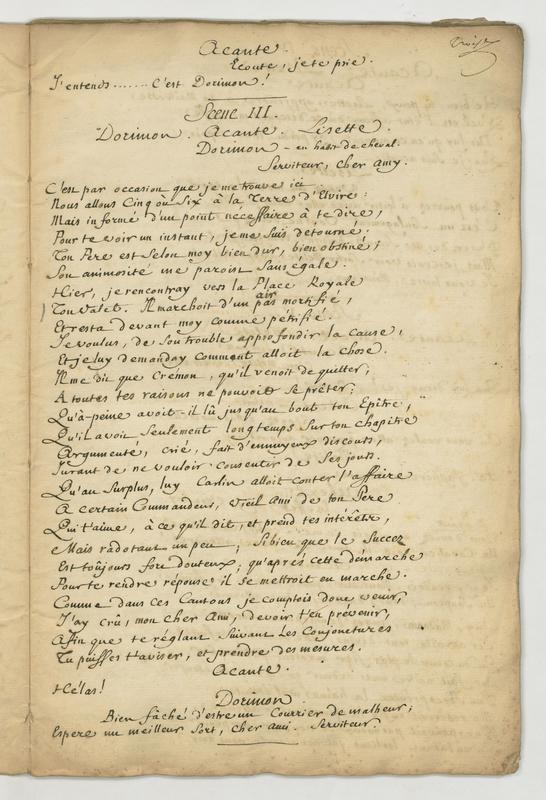 Acante.
Ecoute, je te prie.
J'entends...... C'est Dorimon!
Scene III.
Dorimon. Acante. Lisette.
Dorimon - en habit de cheval.
Serviteur, cher amy.
C'est par occasion que je me trouve ici
Nous allons Cinq ou Six à la Terre d'Elvire:
Mais informé d'un point nécessaire à te dire,
Pour te voir un instant, je me suis détourné;
Ton Pere est selon moy bien dur, bien obstiné;
Son animosité me paroît sans égale.
Hier, je rencontray vers la Place Royale
Ton valet. Il marchoit d'un pas air mortifié,
Et resta devant moy comme pétrifié.
Je voulus, de son trouble approfondir la cause,
Et je luy demanday comment alloit la chose.
Il me dit que Cremon, qu'il venoit de quitter,
A toutes tes raisons ne pouvoit se prêter:
Qu'à-peine avoit-il lû jusqu'au bout ton Epître,
Qu'il avoit seulement longtemps sur ton chapitre
Argumenté, crié, fait d'ennuyeux discours,
Jurant de ne vouloir consentir de ses jours.
Qu'au surplus, luy Carlin alloit conter l'affaire
A certain Commandeur, vieil ami de ton Pere
Qui t'aime, à ce qu'il dit, et prend tes intérêts,
Mais radotant un peu; Si bien que le Succez
Est toûjours fort douteux; qu'aprés cette démarche
Pour te rendre réponse il se mettroit en marche.
Comme dans ces Cantons je comptois donc venir,
J'ay crû, mon cher Ami, devoir t'en prévenir,
Affin que te réglant suivant les Conjonctures
Tu puisses t'aviser, et prendre des mesures.
Acante.
Hélas!
Dorimon.
Bien fâché d'estre un Courrier de malheur;
Espere un meilleur Sort, cher ami. Serviteur.